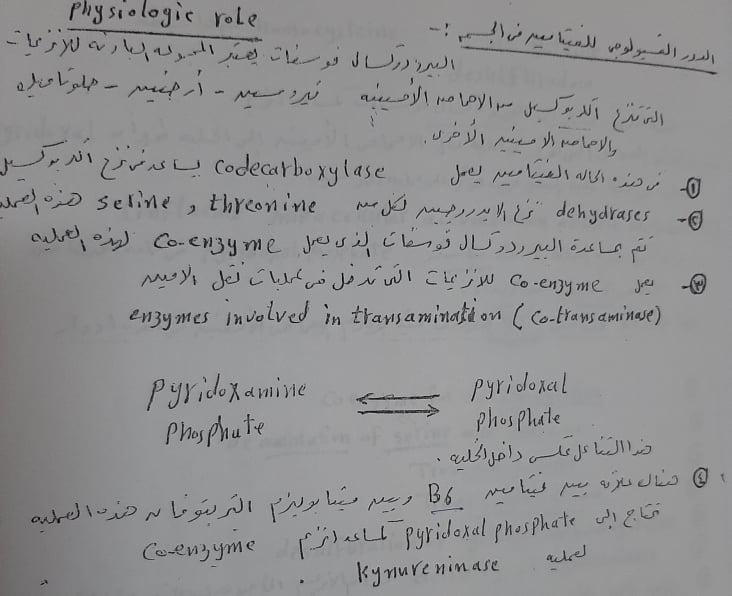 Physiologic role
الدور الفسيولوجى للفيتامين فى الجسم :-
البيرودوكسال فوسفات يعتبر المجموعه البادئه للأنزيمات
التى تنزع الكربوكسيل من الاحماض الأمينيه تيروسين - أرجنين - جلوتاميك
والاحماض الامينيه الأخرى.
١- فى هذه الحاله الفيتامين يعمل codecarboxylase يساعد فى نزع الكربوكسيل
٢- dehydrases نزع الايدروجين لكل من serine , threonine هذه العمليه
تتم بمساعدة البيرودوكسال فوسفات الذى يعمل Co-enzyme لهذه العمليه
٣- يعمل Co-enzyme للانزيمات التى تدخل فى عمليات نقل الامين
enzymes involved in transamination (Co-transaminase)
Pyridoxamine Phosphate ⇌ Pyridoxal Phosphate
هذا التفاعل عكسى داخل الخليه .
٤ هناك علاقه بين فيتامين B6 وبين ميتابوليزم التربتوفان هذه العمليه
تحتاج إلى Pyridoxal phosphate كمساعد انزيم Co-enzyme
لعمليه Kynureninase .